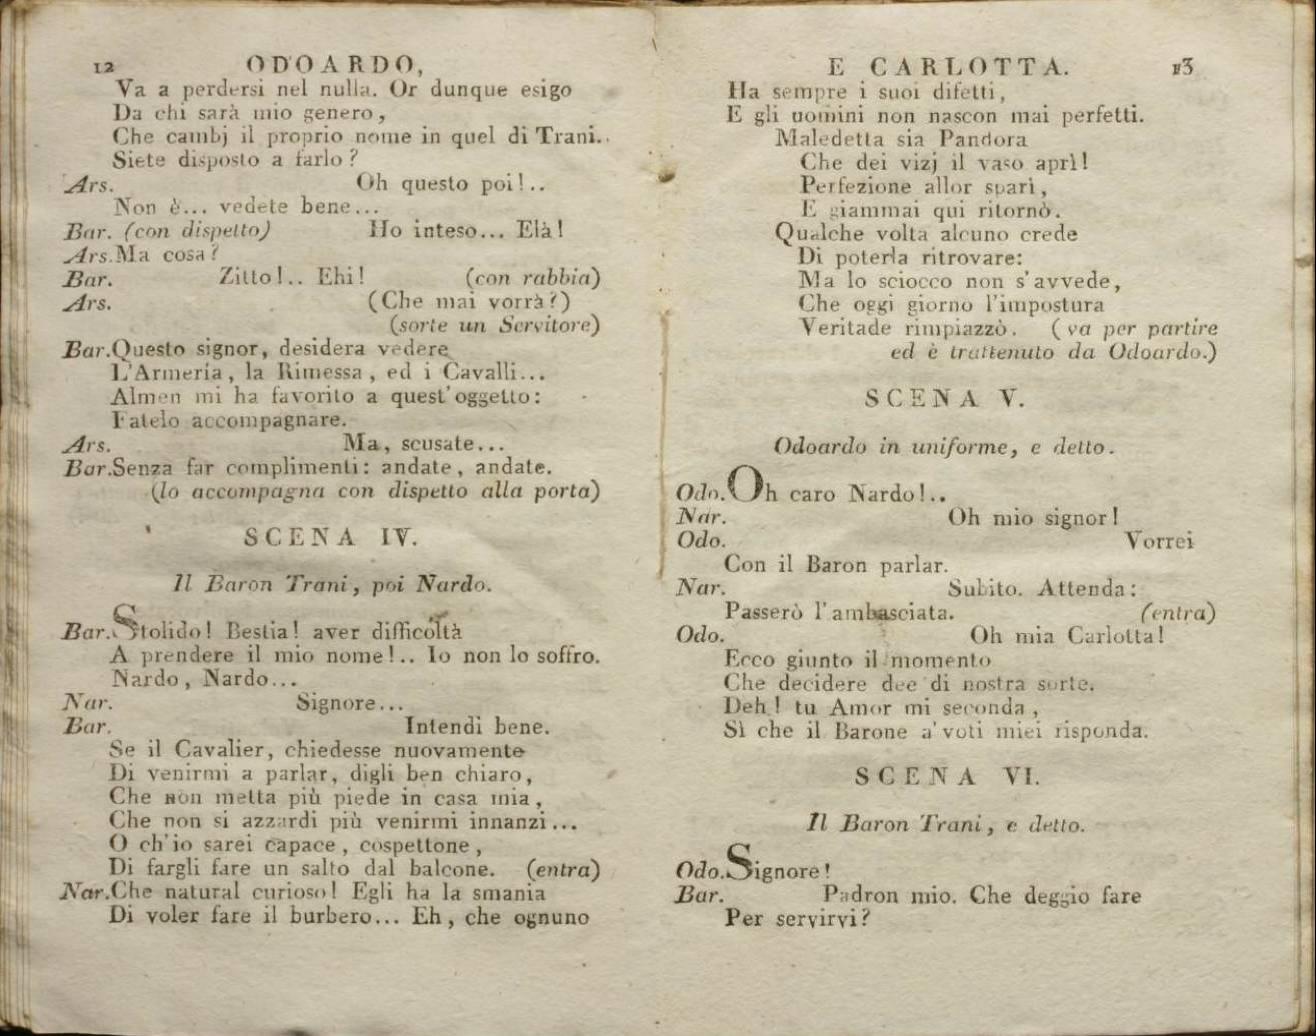 12 ODOARDO,
Va a perdersi nel nulla. Or dunque esigo
Da chi sarà mio genero,
Che cambj il proprio nome in quel di Trani..
Siete disposto a farlo?
Ars. Oh questo poi!..
Non è... vedete bene...
Bar. (con dispetto) Ho inteso... Elà!
Ars. Ma cosa?
Bar. Zitto!.. Ehi! (con rabbia)
Ars. (Che mai vorrà?)
(sorte un Servitore)
Bar. Questo signor, desidera vedere
L'Armeria, la Rimessa, ed i Cavalli...
Almen mi ha favorito a quest'oggetto:
Fatelo accompagnare.
Ars. Ma, scusate...
Bar. Senza far complimenti: andate, andate.
(lo accompagna con dispetto alla porta)
SCENA IV.
Il Baron Trani, poi Nardo.
Bar. Stolido! Bestia! aver difficoltà
A prendere il mio nome!.. Io non lo soffro.
Nardo, Nardo...
Nar. Signore...
Bar. Intendi bene.
Se il Cavalier, chiedesse nuovamente
Di venirmi a parlar, digli ben chiaro,
Che non metta più piede in casa mia,
Che non si azzardi più venirmi innanzi...
O ch'io sarei capace, cospettone,
Di fargli fare un salto dal balcone. (entra)
Nar. Che natural curioso! Egli ha la smania
Di voler fare il burbero... Eh, che ognuno
E CARLOTTA. 13
Ha sempre i suoi difetti,
E gli uomini non nascon mai perfetti.
Maledetta sia Pandora
Che dei vizj il vaso aprì!
Perfezione allor sparì,
E giammai qui ritornò.
Qualche volta alcuno crede
Di poterla ritrovare:
Ma lo sciocco non s'avvede,
Che oggi giorno l'impostura
Veritade rimpiazzò. (va per partire
ed è trattenuto da Odoardo.)
SCENA V.
Odoardo in uniforme, e detto.
Odo. Oh caro Nardo!..
Nar. Oh mio signor!
Odo. Vorrei
Con il Baron parlar.
Nar. Subito. Attenda:
Passerò l'ambasciata. (entra)
Odo. Oh mia Carlotta!
Ecco giunto il momento
Che decidere dee di nostra sorte.
Deh! tu Amor mi seconda,
Sì che il Barone a' voti miei risponda.
SCENA VI.
Il Baron Trani, e detto.
Odo. Signore!
Bar. Padron mio. Che deggio fare
Per servirvi?